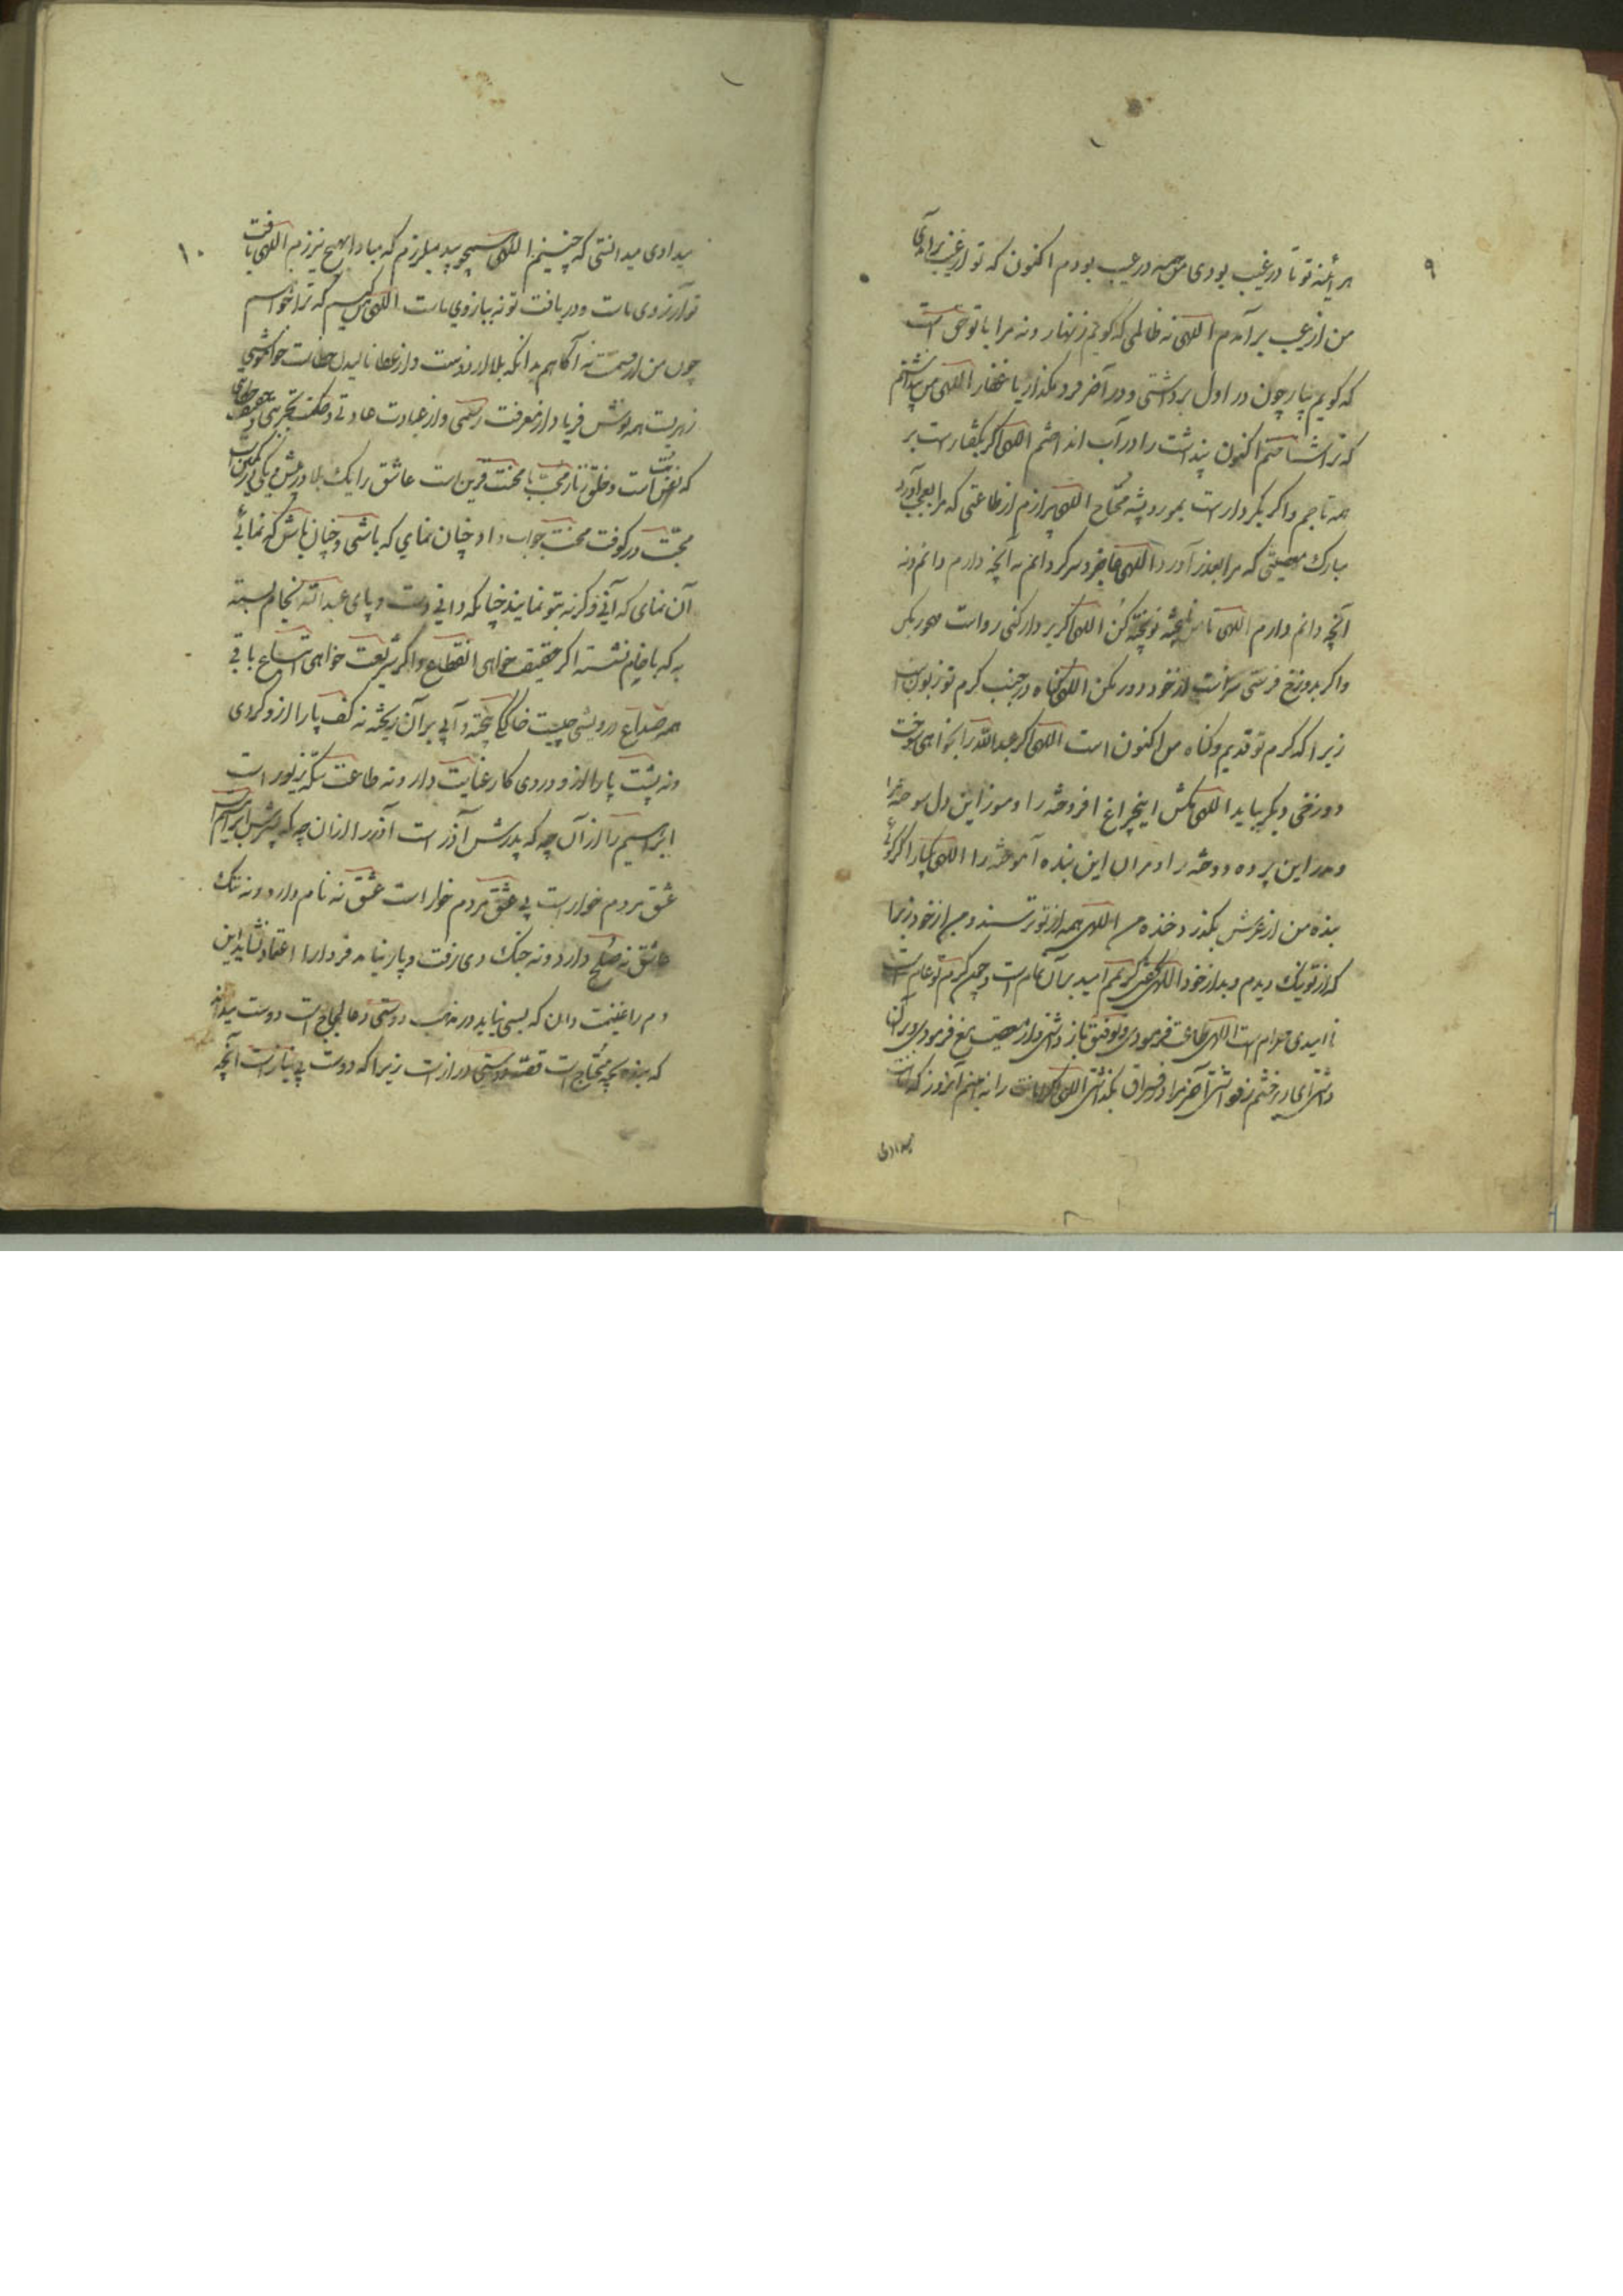 ۹
هر آئینه تو تا در غیب بودی من همه در عیب بودم اکنون که تو از غیب برآمدی
من از عیب برآمدم اللهی نه ظالمی که گویم زنهار و نه مرا با تو حق است
که گویم بیار چون در اول برداشتی و در آخر فرو مگذار یا غفار اللهی من پنداشتم
که ترا شناختم اکنون پنداشت را در آب انداختم اللهی اگر بگفتارست بر
همه تاجم و اگر بکردارست بمور و پشه محتاج اللهی بیزارم از طاعتی که مرا بعجب آورد
مبارک معصیتی که مرا بعذر آورد اللهی عاجز و سرگردانم نه آنچه دارم دانم و نه
آنچه دانم دارم اللهی تا پخته تو پخته کن اللهی اگر بردار کنی رواست مهجور مکن
و اگر بدوزخ فرستی رضاست از خود دور مکن اللهی گناه در جنب کرم تو زبون است
زیرا که کرم تو قدیم و گناه من اکنون است اللهی اگر عبدالله را بخواهی سوخت
دوزخی دیگر باید اللهی مکش اینچراغ افروخته را و مسوز این دل سوخته را
و مدر این پرده دوخته را و مران این بنده آموخته را اللهی یکبار اگر گوئی
بنده من از عرش بگذرد خنده من اللهی همه از تو ترسند و من از خود زیرا
که از تو نیک دیدم و بد از خود اللهی گفتی کریمم امید بر آن تمام است و چون کرم تو عام است
ناامیدی حرام است اللهی طاعت فرمودی و توفیق باز داشتی و از معصیت منع فرمودی و بر آن
داشتی ای دیر خشم زود آشتی آخر مرا در فراق بگذاشتی اللهی را نه بینم آنروز که
بیداری
۱۰
بیداری میدانستی که چنینم اللهی همچو بید میلرزم که مبادا بهیچ نیرزم اللهی یافت
تو آرزوی ماست و دریافت تو نه ببازوی ماست اللهی من کیم که ترا خواهم
چون من از قیمت نه آگاهم بدانکه بلا از دوست و از عطا نالیدن خطاست خواه
زهرست همه نوش فریاد از معرفت رسمی و از عبادت عادتی و حکمت تجربتی و حقیقت حکایتی
که است و خلق نثار محبت با محنت قرین است عاشق را یک بلا در پیش و یکی در کمین است
محبت در کوفت محنت جواب داد چنان نمای که باشی و چنان باش که نمائی
آن نمای که آنی وگرنه بتو نمایند چنانکه دانی دست و پای عبدالله بسته
به که با خام نشسته اگر حقیقت خواهی انقطاع و اگر شریعت خواهی اتساع باقی
همه صداع درویشی چیست خاکی بیخته و آبی بر آن ریخته نه کف پا را ازو گردی
و نه پشت پا را ازو دردی کار عنایت دارد نه طاعت سکه زیورست
ابراهیم را از آن چه که پدرش آذرست آذر را از آن چه که پسرش ابراهیم است
عشق مردم خوارست بی عشق مردم خوار است عشق نه نام دارد و نه ننگ
عاشق نه صلح دارد و نه جنگ دی رفت و باز نیاید فردا را اعتماد نشاید این
دم را غنیمت دان که بسی نیاید در مذهب دوستی دعا لجاج است دوست میداند
که بنده بچه محتاج است قصه دوستی دراز است زیرا که دوست بی نیاز است آنچه